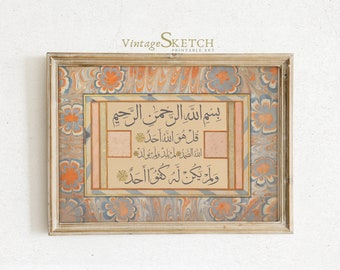 VintageSKETCH
PRINTABLE ART
بِسْمِ اللّٰهِ الرَّحْمٰنِ الرَّحِيْمِ
قُلْ هُوَ اللّٰهُ اَحَدٌ
اللّٰهُ الصَّمَدُ لَمْ يَلِدْ وَلَمْ يُولَدْ
وَلَمْ يَكُنْ لَهُ كُفُوًا اَحَدٌ